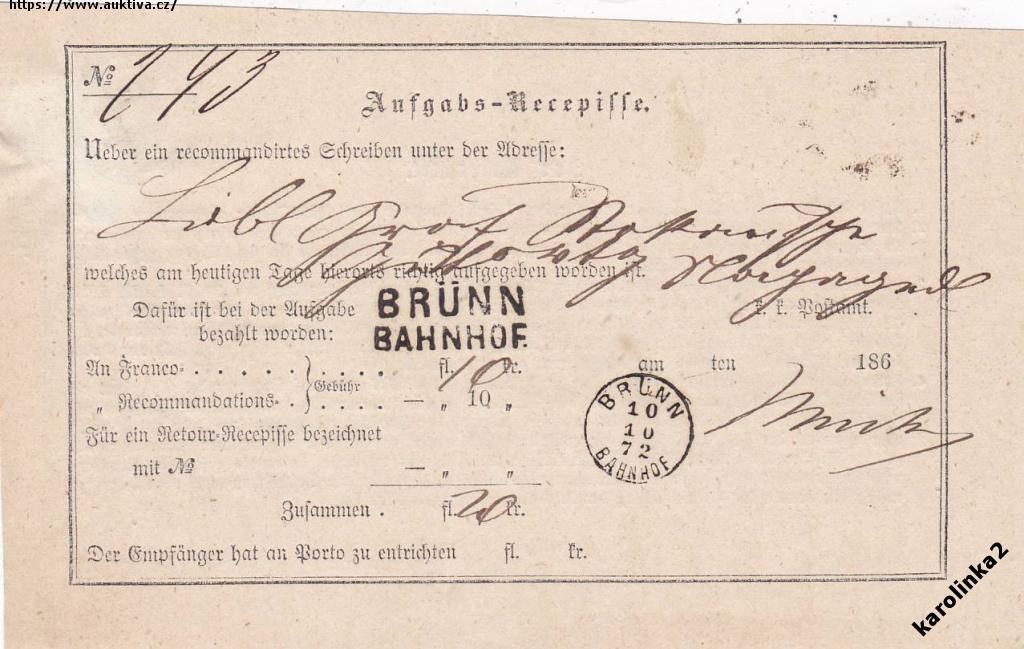 https://www.auktiva.cz/
№ 243
Aufgabs-Recepisse.
Ueber ein recommandirtes Schreiben unter der Adresse:
Löbl Graf
welches am heutigen Tage hierorts richtig aufgegeben worden ist.
Dafür ist bei der Aufgabe bezahlt worden:
BRÜNN
BAHNHOF.
k. k. Postamt.
An Franco . . . . . . . . . . fl. 10 kr.
am ten 186
Gebühr
„ Recommandations- . . . . . — „ 10 „
BRÜNN
10
10
72
BAHNHOF
Für ein Retour-Recepisse bezeichnet
mit № — „ „
Zusammen . fl. 20 kr.
Der Empfänger hat an Porto zu entrichten fl. kr.
karolinka2